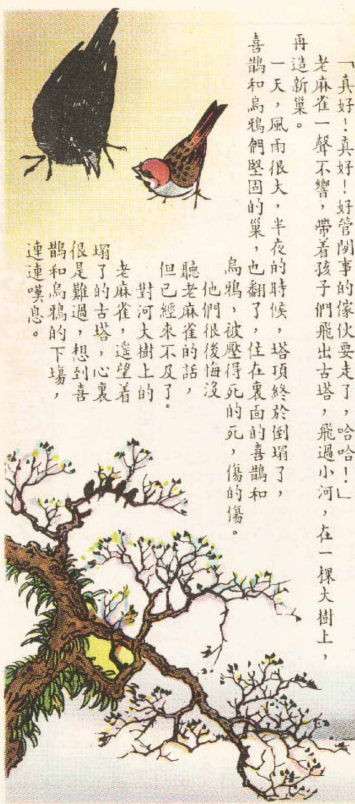 「真好！真好！好管閒事的傢伙要走了，哈哈！」
老麻雀一聲不響，帶着孩子們飛出古塔，飛過小河，在一棵大樹上，
再造新巢。
一天，風雨很大，半夜的時候，塔頂終於倒塌了，
喜鵲和烏鴉們堅固的巢，也翻了，住在裏面的喜鵲和
烏鴉，被壓得死的死，傷的傷。
他們很後悔沒
聽老麻雀的話，
但已經來不及了。
對河大樹上的
老麻雀，遙望着
塌了的古塔，心裏
很是難過，想到喜
鵲和烏鴉的下場，
連連嘆息。